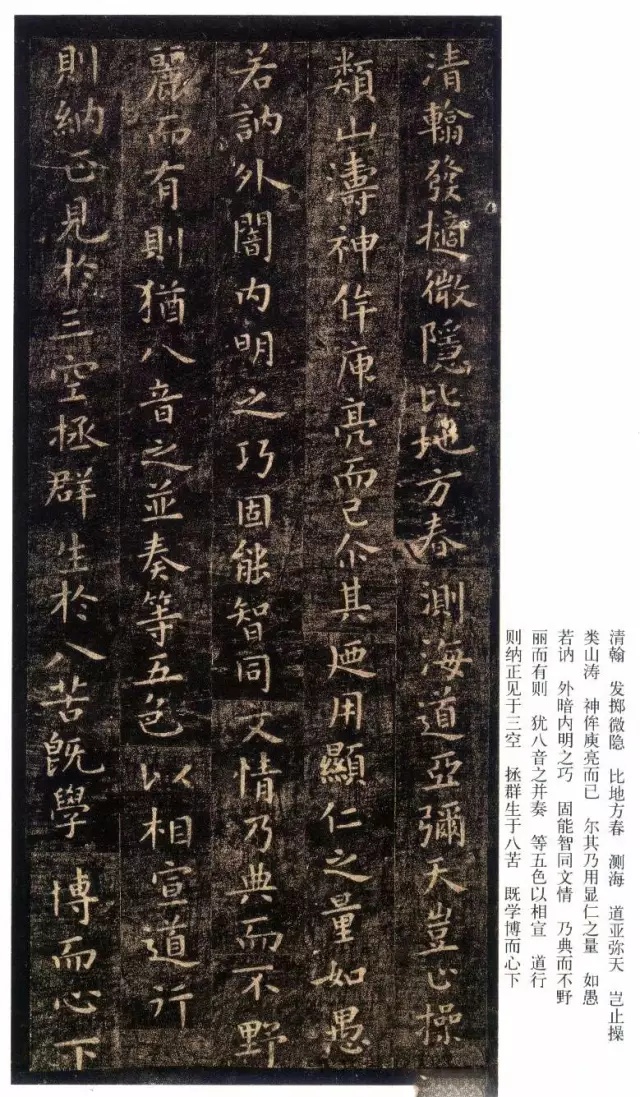 清翰發擿微隱比地方春測海道亞彌天豈止操
類山濤神侔庾亮而已尒其迺用顯仁之量如愚
若訥外闇内明之巧固能智同文情乃典而不野
麗而有則猶八音之並奏等五色以相宣道行
則納正見於三空拯群生於八苦既學博而心下
清翰 发掷微隐 比地方春 测海 道亚弥天 岂止操
类山涛 神侔庾亮而已 尔其乃用显仁之量 如愚
若讷 外暗内明之巧 固能智同文情 乃典而不野
丽而有则 犹八音之并奏 等五色以相宣 道行
则纳正见于三空 拯群生于八苦 既学博而心下